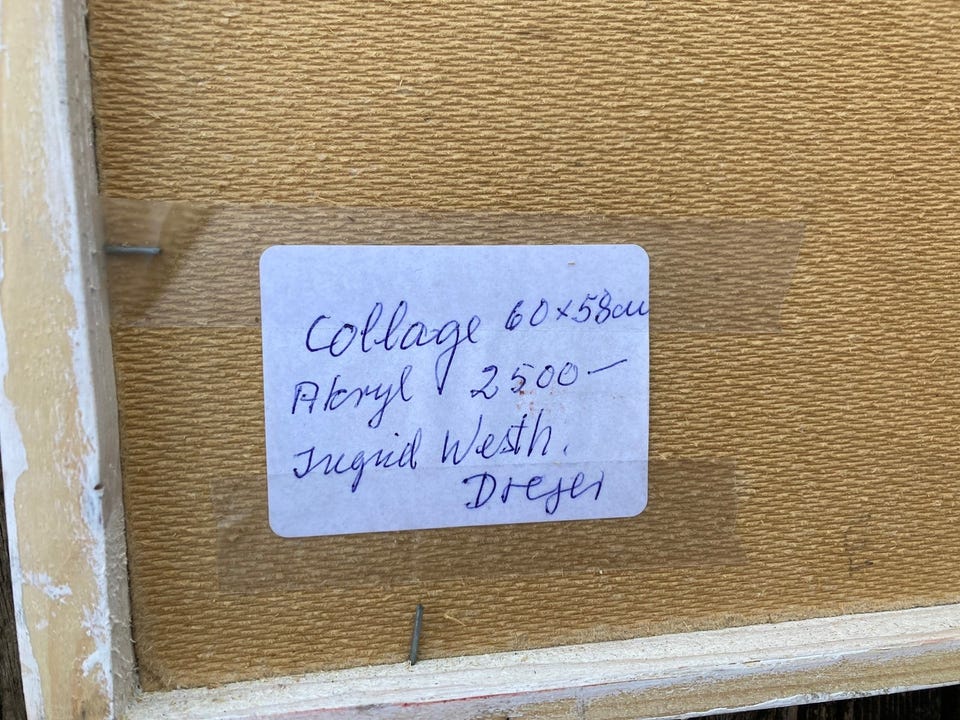 Collage 60x58cm
Akryl 2500-
Ingrid Westh.
Dreyer